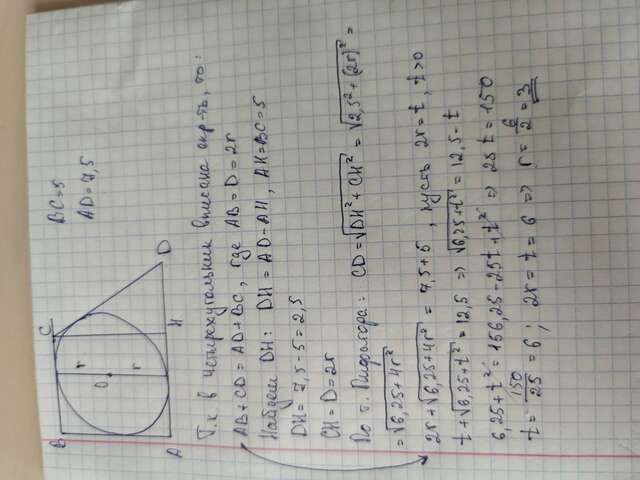 BC=5
AD=7,5
B
C
A
H
D
O
r
r
Т.к в четырехугольник вписана окр-ть, то:
AB+CD=AD+BC, где AB=D=2r
Найдем DH: DH=AD-AH, AH=BC=5
DH=7,5-5=2,5
CH=D=2r
По т. Пифагора: CD=√(DH²+CH²)=√(2,5²+(2r)²)=
=√(6,25+4r²)
2r+√(6,25+4r²)=7,5+5, пусть 2r=t, t>0
t+√(6,25+t²)=12,5 ⇒ √(6,25+t²)=12,5-t
6,25+t²=156,25-25t+t² ⇒ 25t=150
t=150/25=6; 2r=t=6 ⇒ r=6/2=3